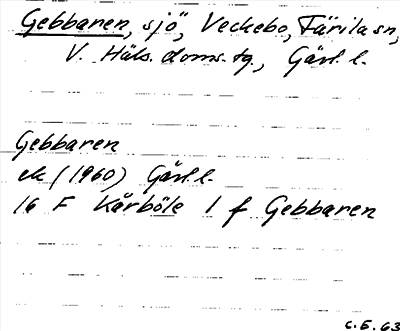 Gebbaren, sjö, Veckebo, Färila sn,
V. Häls. doms. tg., Gävl. l.
Gebbaren
ek (1960) Gävl. l.
16 F Kårböle 1 f Gebbaren
C.E. 63